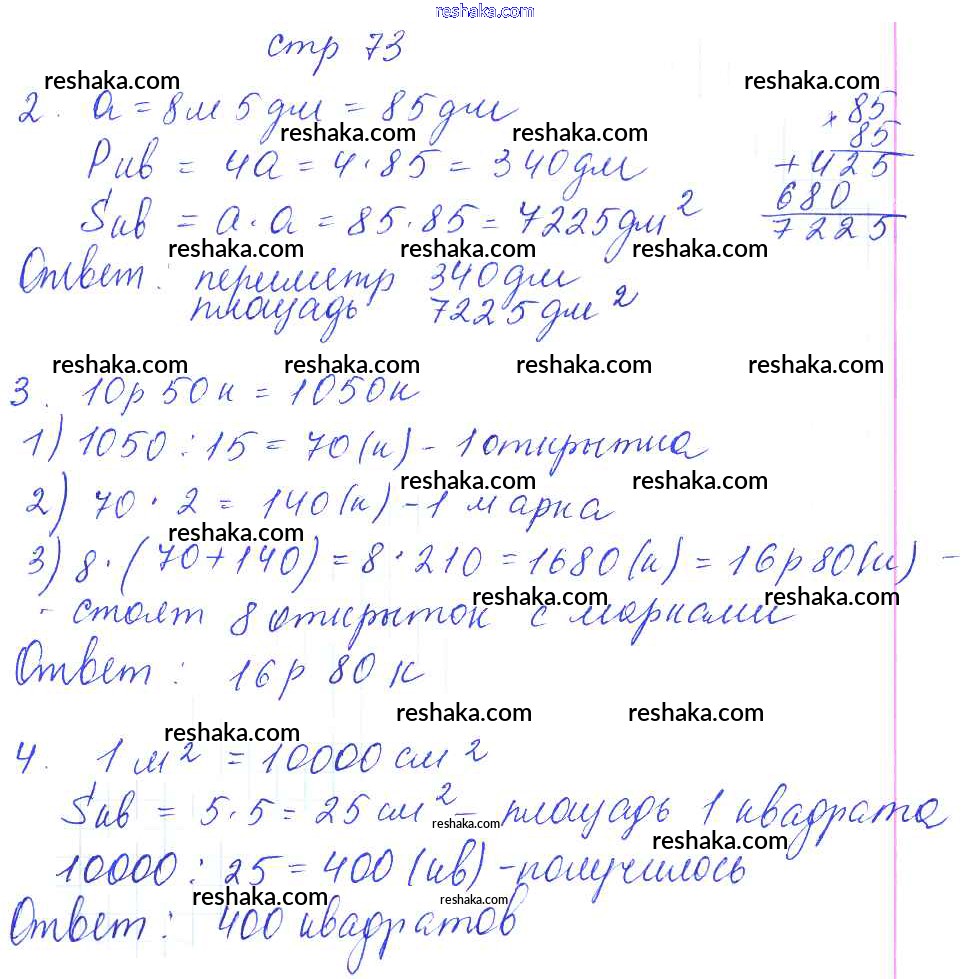 reshaka.com
стр 73
reshaka.com reshaka.com
2. a = 8м 5дм = 85дм
85
reshaka.com reshaka.com
× 85
Pкв = 4a = 4·85 = 340дм
+ 425
Sкв = a·a = 85·85 = 7225дм²
680
reshaka.com reshaka.com reshaka.com
7225
Ответ: периметр 340дм
площадь 7225дм²
reshaka.com reshaka.com reshaka.com reshaka.com
3. 10р 50к = 1050к
1) 1050 : 15 = 70(к) - 1 открытка
reshaka.com reshaka.com
2) 70 · 2 = 140(к) - 1 марка
reshaka.com
3) 8·(70+140) = 8·210 = 1680(к) = 16р 80(к) -
reshaka.com reshaka.com
- стоят 8 открыток с марками
Ответ: 16р 80к
reshaka.com reshaka.com
reshaka.com
4. 1 м² = 10000см²
Sкв = 5·5 = 25см² - площадь 1 квадрата
reshaka.com
reshaka.com
10000 : 25 = 400 (кв) - получилось
reshaka.com
reshaka.com reshaka.com
Ответ: 400 квадратов